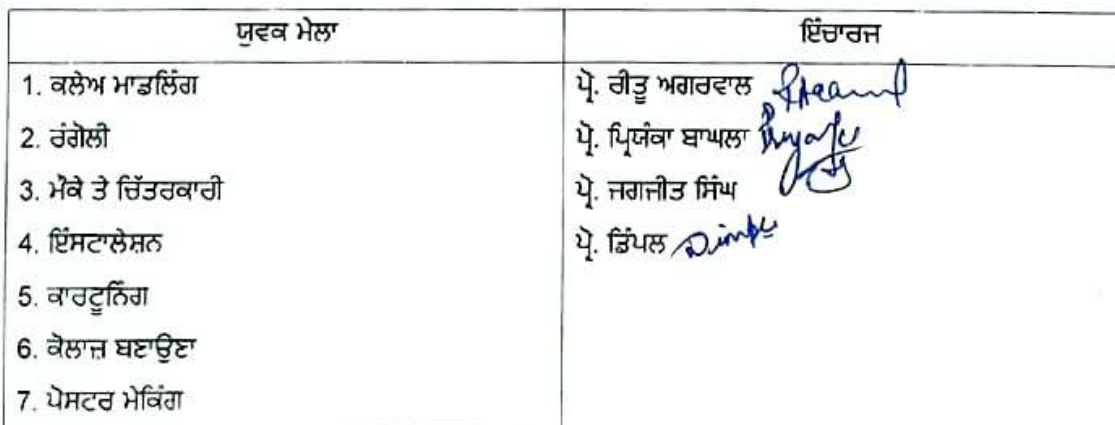 ਯੁਵਕ ਮੇਲਾ ਇੰਚਾਰਜ
1. ਕਲੇਅ ਮਾਡਲਿੰਗ ਪ੍ਰੋ. ਰੀਤੂ ਅਗਰਵਾਲ
2. ਰੰਗੋਲੀ ਪ੍ਰੋ. ਪ੍ਰਿਯੰਕਾ ਬਾਘਲਾ
3. ਮੌਕੇ ਤੇ ਚਿੱਤਰਕਾਰੀ ਪ੍ਰੋ. ਜਗਜੀਤ ਸਿੰਘ
4. ਇੰਸਟਾਲੇਸ਼ਨ ਪ੍ਰੋ. ਡਿੰਪਲ
5. ਕਾਰਟੂਨਿੰਗ
6. ਕੋਲਾਜ਼ ਬਣਾਉਣਾ
7. ਪੋਸਟਰ ਮੇਕਿੰਗ